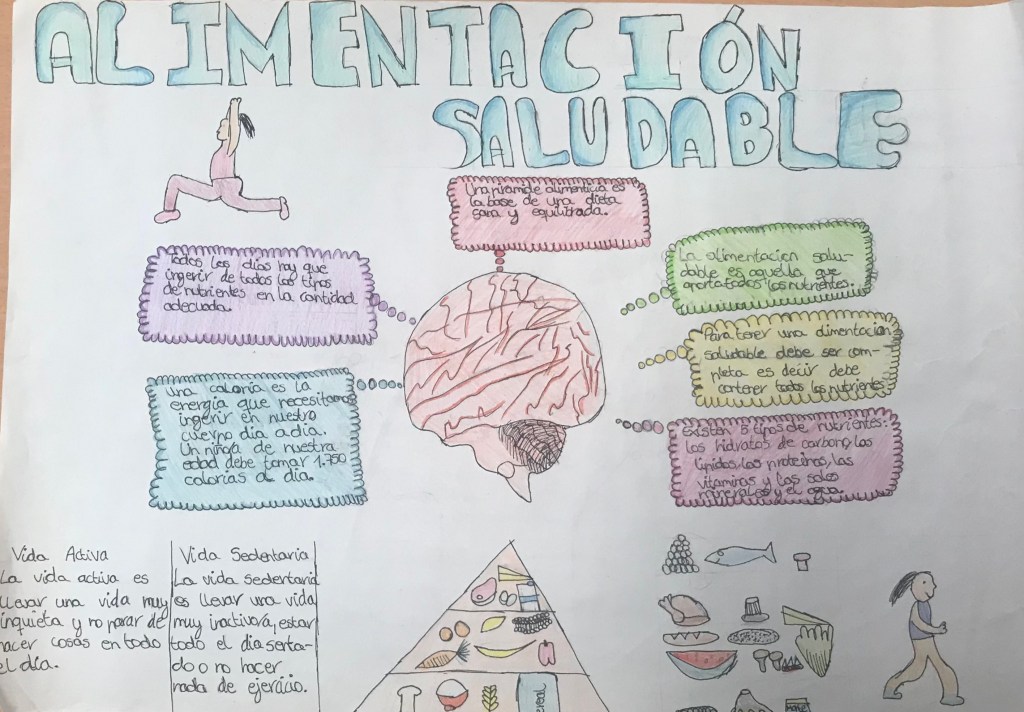 ALIMENTACIÓN
SALUDABLE
Una pirámide alimenticia es
la base de una dieta
sana y equilibrada.
Todos los días hay que
ingerir de todos los tipos
de nutrientes en la cantidad
adecuada.
La alimentacion salu-
dable es aquella que
aporta todos los nutrientes.
Para tener una alimentacion
saludable debe ser com-
pleta es decir debe
contener todos los nutrientes
una caloria es la
energía que necesitamos
ingerir en nuestro
cuerpo dia a dia.
Un niño/a de nuestra
edad debe tomar 1.750
calorias al día.
existen 5 tipos de nutrientes:
los hidratos de carbono, los
lipidos, las proteinas, las
vitaminas y las sales
minerales y el agua
Vida Activa
La vida activa es
llevar una vida muy
inquieta y no parar de
hacer cosas en todo
el día.
Vida Sedentaria
La vida sedentaria
es llevar una vida
muy inactiva, estar
todo el dia senta-
do o no hacer
nada de ejercicio.
cereal